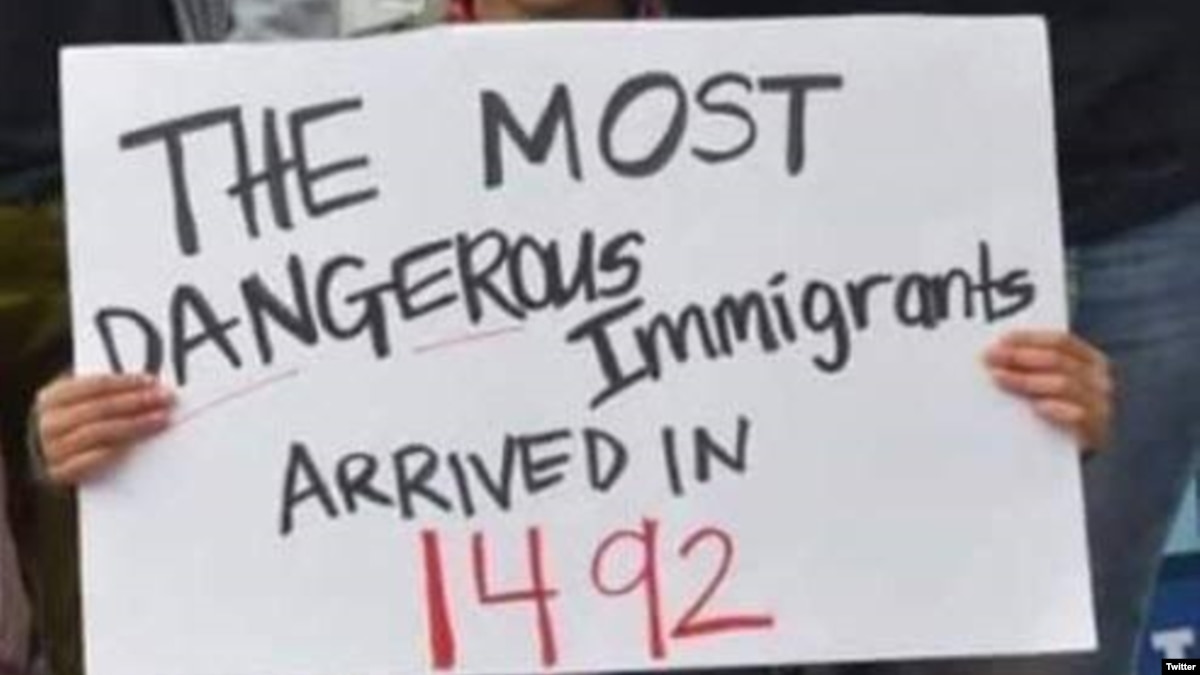 THE MOST
DANGEROUS
Immigrants
ARRIVED IN
1492
Twitter